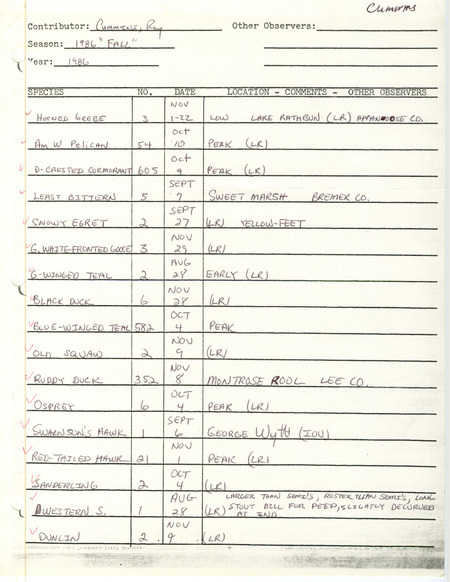 Cummins
Contributor: Cummins, Ray Other Observers:
Season: 1986 "FALL"
Year: 1986
SPECIES NO. DATE LOCATION - COMMENTS - OTHER OBSERVERS
HORNED GREBE 3 NOV 1-22 LOW LAKE RATHBUN (LR) APPANOOSE CO.
Am W PELICAN 54 Oct 10 PEAK (LR)
D-CRESTED CORMORANT 605 Oct 9 PEAK (LR)
LEAST BITTERN 5 SEPT 7 SWEET MARSH BREMER CO.
SNOWY EGRET 2 SEPT 27 (LR) YELLOW-FEET
G. WHITE-FRONTED GOOSE 3 NOV 29 (LR)
G-WINGED TEAL 2 AUG 28 EARLY (LR)
BLACK DUCK 6 NOV 28 (LR)
BLUE-WINGED TEAL 582 OCT 4 PEAK
OLD SQUAW 2 NOV 9 (LR)
RUDDY DUCK 352 NOV 8 MONTROSE POOL LEE CO.
OSPREY 6 OCT 4 PEAK (LR)
SWAINSON'S HAWK 1 SEPT 6 GEORGE (IOU)
RED-TAILED HAWK 21 NOV 1 PEAK (LR)
SANDERLING 2 OCT 4 (LR)
WESTERN S. 1 AUG 28 (LR) LARGER THAN SEMI'S, RUSTER THAN SEMI'S, LONG
STOUT BILL FOR PEEP, SLIGHTLY DECURVED
AT END
DUNLIN 2 NOV 9 (LR)